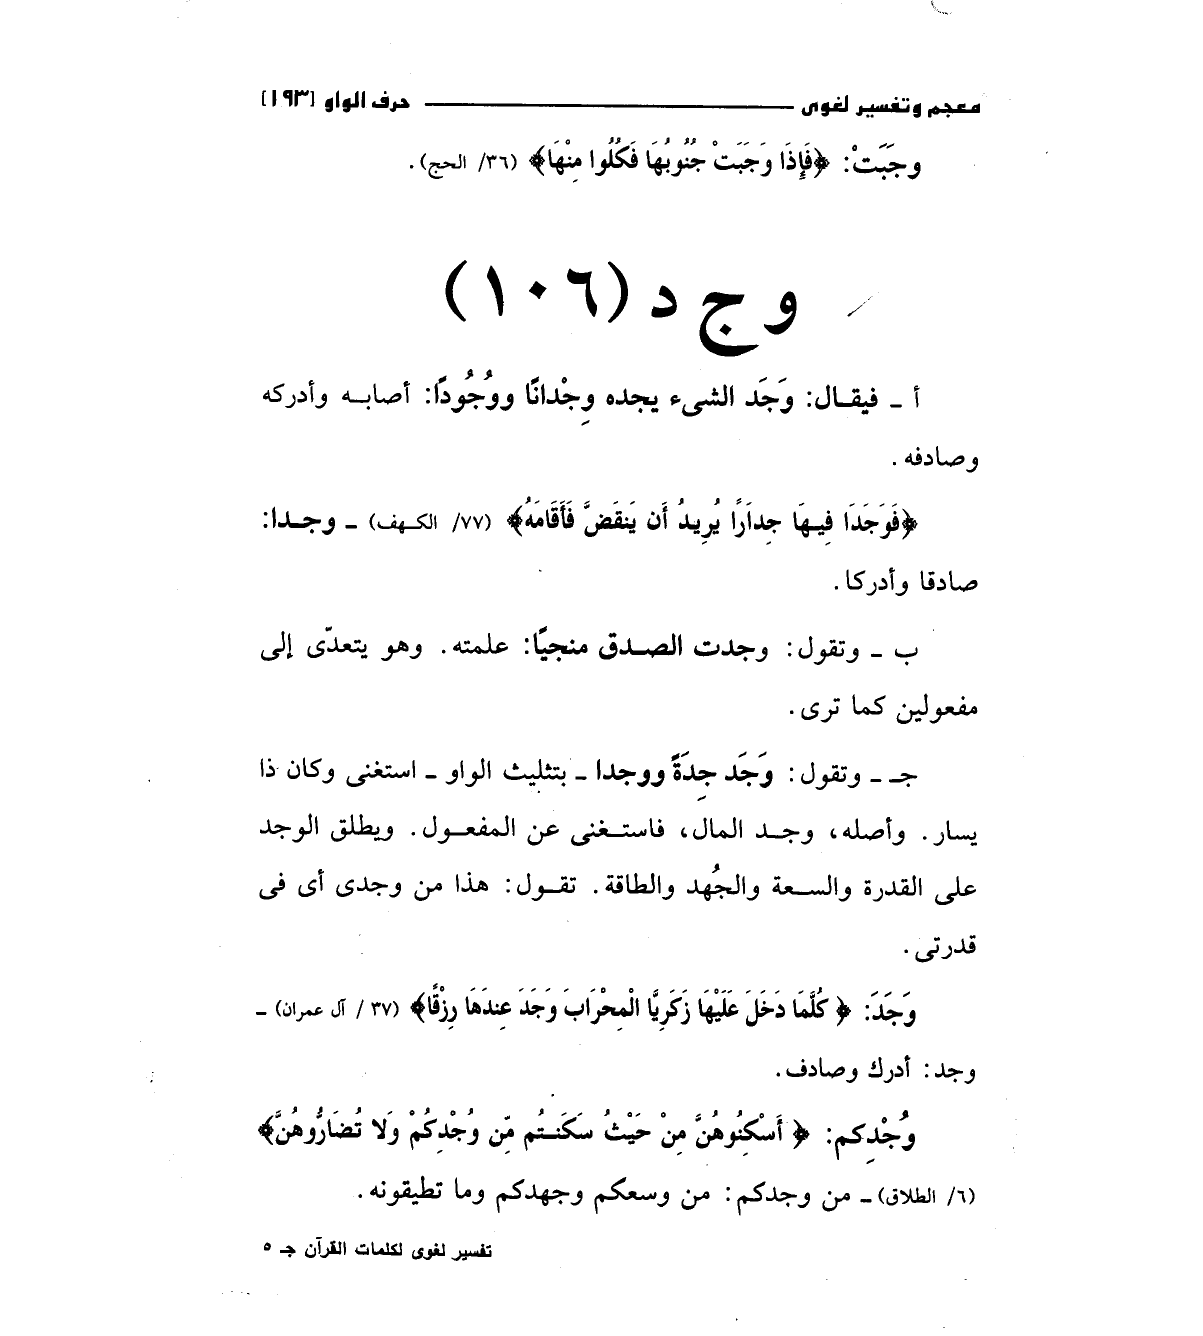 معجم وتفسير لغوى ــــــ حرف الواو [١٩٣]
وجَبَتْ: ﴿فَإِذَا وَجَبَتْ جُنُوبُهَا فَكُلُوا مِنْهَا﴾ (٣٦/ الحج).
و ج د (١٠٦)
أ ـ فيقال: وَجَد الشىء يجده وِجْدانًا ووُجُودًا: أصابه وأدركه
وصادفه.
﴿فَوَجَدَا فِيهَا جِدَارًا يُرِيدُ أَن يَنقَضَّ فَأَقَامَهُ﴾ (٧٧/ الكهف) ـ وجدا:
صادقا وأدركا.
ب ـ وتقول: وجدت الصدق منجيًا: علمته. وهو يتعدّى إلى
مفعولين كما ترى.
جـ ـ وتقول: وَجَد جِدَةً ووجدا ـ بتثليث الواو ـ استغنى وكان ذا
يسار. وأصله، وجد المال، فاستغنى عن المفعول. ويطلق الوجد
على القدرة والسعة والجُهد والطاقة. تقول: هذا من وجدى أى فى
قدرتى.
وَجَدَ: ﴿كُلَّمَا دَخَلَ عَلَيْهَا زَكَرِيَّا الْمِحْرَابَ وَجَدَ عِندَهَا رِزْقًا﴾ (٣٧ / آل عمران) ـ
وجد: أدرك وصادف.
وُجْدِكم: ﴿أَسْكِنُوهُنَّ مِنْ حَيْثُ سَكَنتُم مِّن وُجْدِكُمْ وَلا تُضَارُّوهُنَّ﴾
(٦/ الطلاق) ـ من وجدكم: من وسعكم وجهدكم وما تطيقونه.
تفسير لغوى لكلمات القرآن جـ ٥